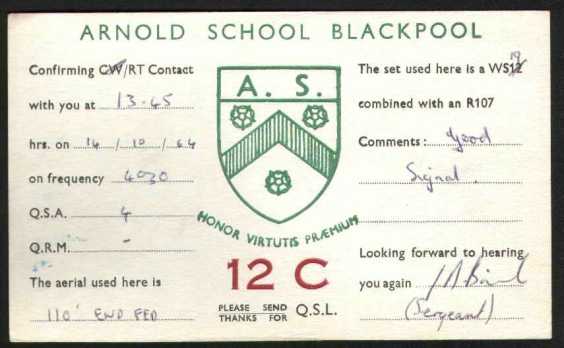 ARNOLD SCHOOL BLACKPOOL
Confirming CW/RT Contact
with you at 13.45
hrs. on 14 / 10 / 64
on frequency 4030
Q.S.A. 4
Q.R.M. -
The aerial used here is
110' END FED
A. S.
HONOR VIRTUTIS PRÆMIUM
12 C
PLEASE SEND
THANKS FOR Q.S.L.
The set used here is a WS19
combined with an R107
Comments: Good
Signal.
Looking forward to hearing
you again
(Sergeant)